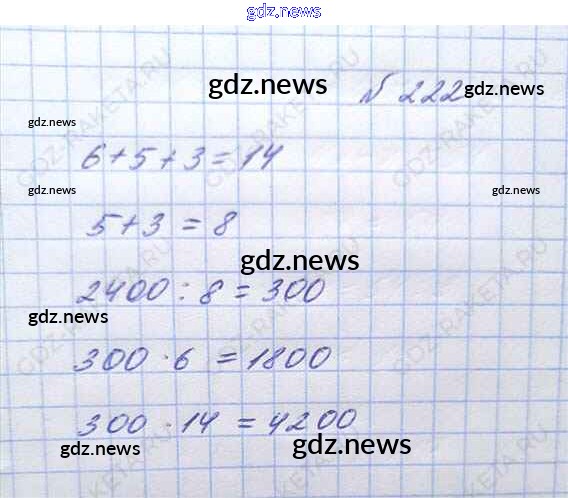 gdz.news
gdz.news
№ 222 gdz.news
gdz.news
6+5+3=14
gdz.news gdz.news
5+3=8
gdz.news
2400:8=300
gdz.news
300·6=1800
300·14=4200
gdz.news gdz.news
GDZ-RAKETA.RU
GDZ-RAKETA.RU
GDZ-RAKETA.RU
GDZ-RAKETA.RU
GDZ-RAKETA.RU